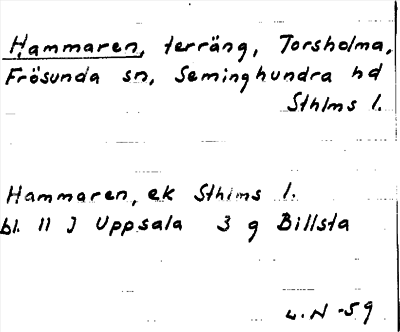 Hammaren, terräng, Torsholma,
Frösunda sn, Seminghundra hd
Sthlms l.
Hammaren, ek Sthlms l.
bl. 11 J Uppsala 3 g Billsta
L. N -59